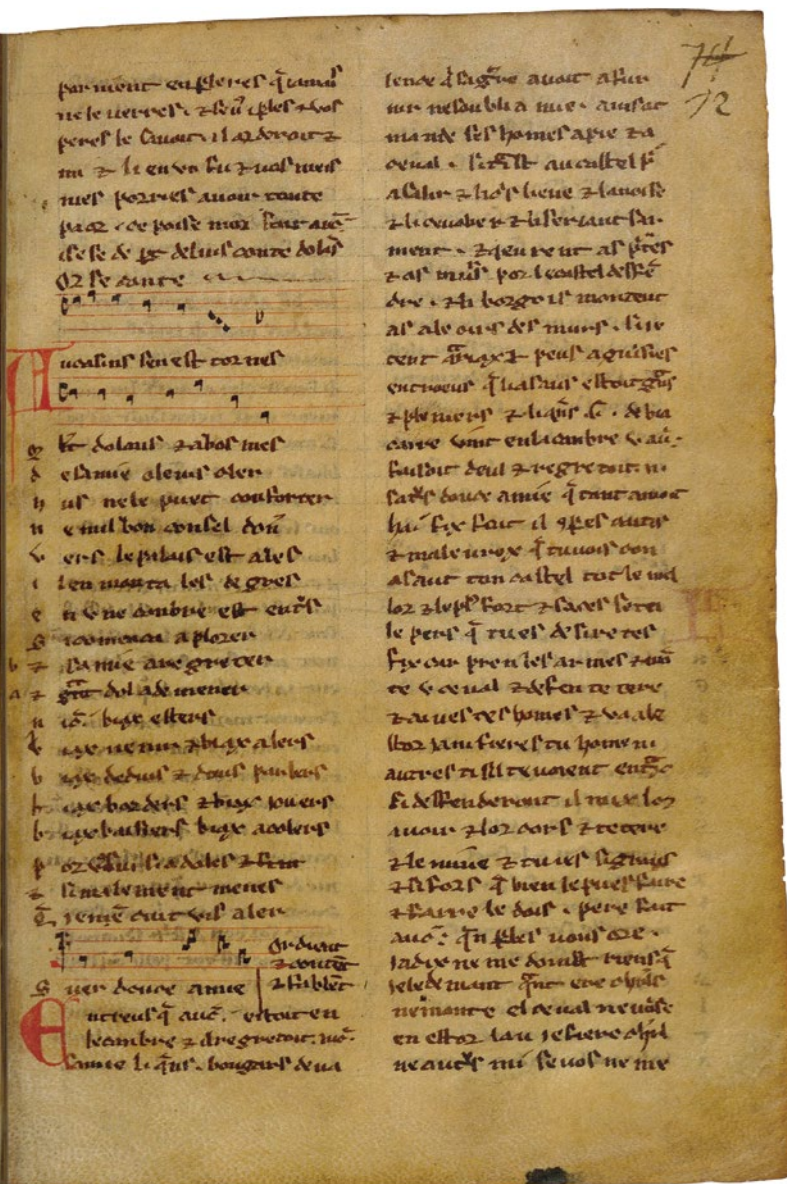 por nient en pleres q̃ iamais
ne le uerres · ⁊ se ũ i ples ⁊ vos
peres le sauoit · il arderoit ⁊
mi ⁊ li en vn fu ⁊ vos meis
mes porries auoir toute
paor · ce poise moi fait auc̃
ise se de pt del uis conte dolãs
Or se cante
Aucasins sen est tornes
mlt dolans ⁊ abosmes
de samie o le uis cler
nus ne le puet conforter
ne nul bon consel doñ
vers le palais est ales
il en monta les degres
en vne canbre est entrs
si comenca a plorer
b ⁊ samie a regreter
a ⁊ grãt dol a demener
nic̃ · biax esters
biax venir ⁊ biax alers
biax deduis ⁊ dous parlers
biax borders ⁊ biax iouers
biax baisiers biax acolers
por vos sui si adoles
⁊ si malement menes
q̃ ie nẽ cuit vis aler
Suer douce amie
Or dient
⁊ content
⁊ fablent
Entreus q̃ auc̃ · estoit en
le canbre ⁊ il regretoit nic̃ ·
samie li qũs · bougars de ua
74
72
lence q̃ sa gerre auoit a fur
nir ne soublia mie · ains ot
mande ses homes a pie ⁊ a
ceual · si traist au castel p̃
asalir ⁊ li cris lieue ⁊ la noise
⁊ li ceualier ⁊ li seriant sar
ment · ⁊ qeurent as portes
⁊ as murs por le castel desfẽ
dre · ⁊ li borgois montent
as aleoirs des murs · si ie
tent quariax ⁊ peus aguisies
entroeus q̃ li asaus estoit grãs
⁊ pleniers ⁊ li qũs G · de bia
caire vint en la canbre v auc̃ ·
faisoit deul ⁊ regretoit ni
sa tres douce amie q̃ tant amoit
ha fix fait il 9 par es caitis
⁊ maleurox q̃ tu vois con
asaut ton castel tot le mel
lor ⁊ le pls fort ⁊ saces se tu
le pers q̃ tu es desiretes
fix car pren les armes ⁊ mõ
te v ceual ⁊ defen te tere
⁊ aiues tes homes ⁊ va a le
stor ia ni fieres tu home ni
autres ti sil te uoient entrax
si desfenderont il mix lor
auoir ⁊ lor cors ⁊ te tere
⁊ le miue ⁊ tu ies si grãs
⁊ si fors q̃ bien le pues faire
⁊ faire le dois · pere fait
auc̃ · q̃n ples vous ore ·
ia dix ne me doinst riens q̃
ie le demant qãnt ere cheualiers
ne monte el ceual ne voise
en estor la v ie fiere cheualier
ne autres mi se vos ne me